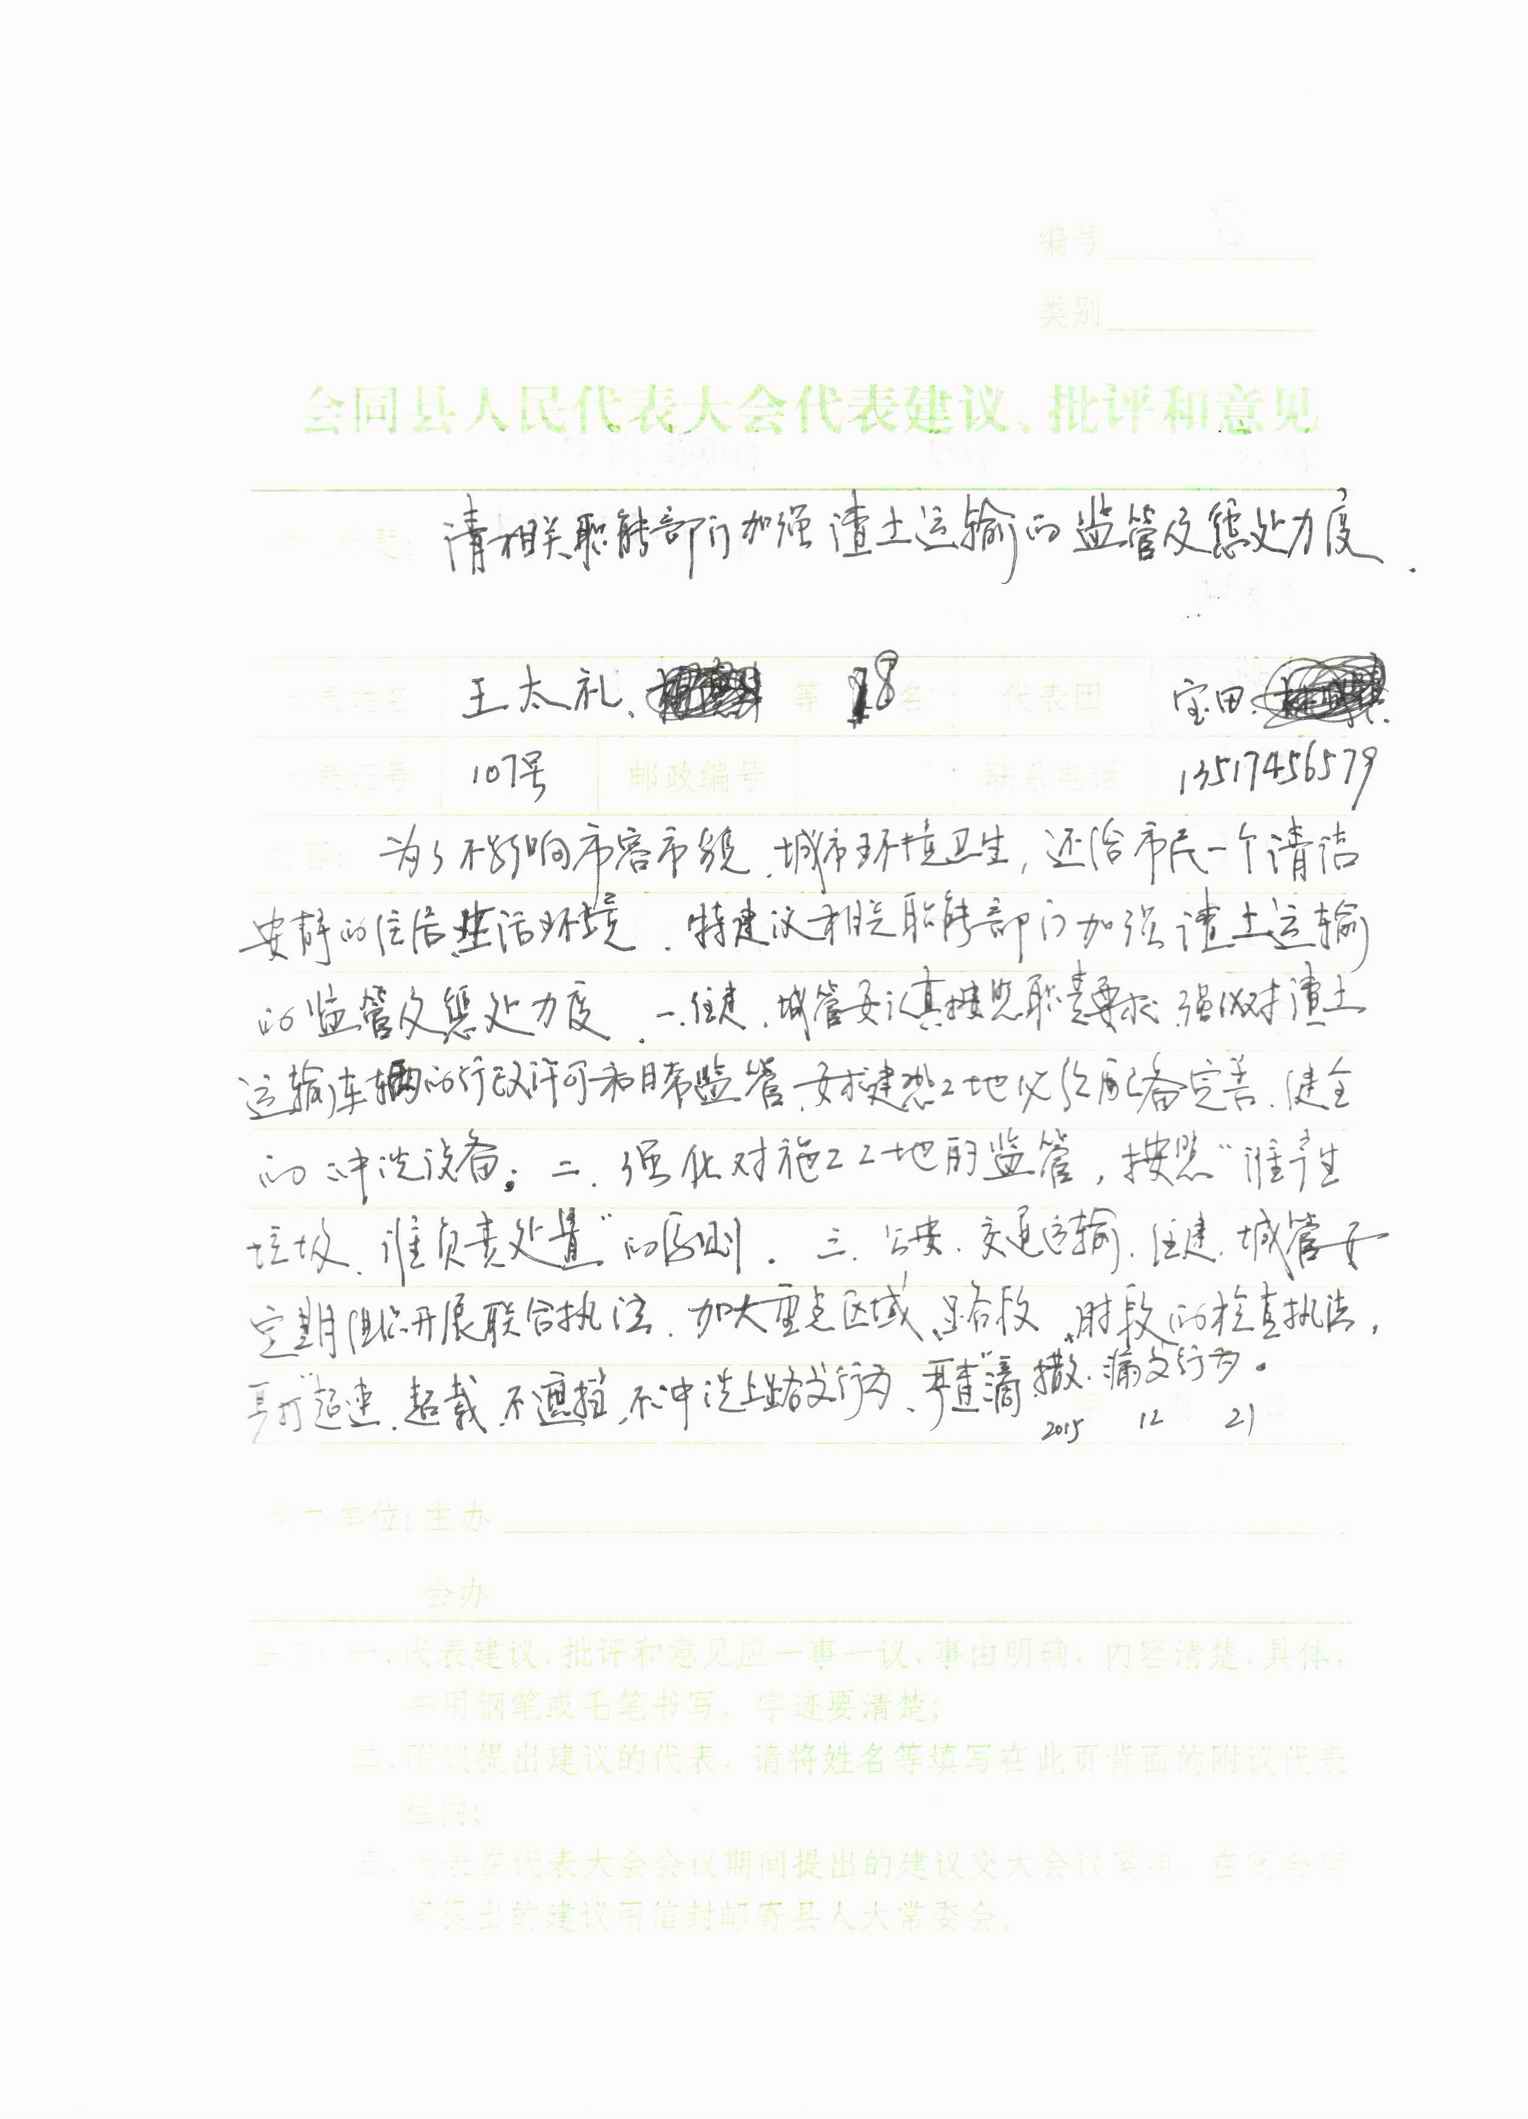 编号
类别
会同县人民代表大会代表建议、批评和意见
请相关职能部门加强渣土运输的监管及惩处力度.
王太礼、 等 18 名 代表团 宝田、
107号 邮政编号 联系电话 13517456579
为了不影响市容市貌、城市环境卫生,还给市民一个清洁
安静的住居生活环境、特建议相关职能部门加强渣土运输
的监管及惩处力度。一、住建、城管要认真按照职责要求、强化对渣土
运输车辆的行政许可和日常监管、要求建筑工地必须配备完善、健全
的冲洗设备。二、强化对施工工地的监管,按照“谁产生
垃圾、谁负责处置”的原则。三、公安、交通运输、住建、城管要
定期组织开展联合执法、加大重点区域、路段、时段的检查执法,
严打“超速、超载、不遮挡、不冲洗上路”等行为、严查“滴、撒、漏”等行为。
2015 12 21
单位:主办
会办
一、代表建议、批评和意见应一事一议,事由明确,内容清楚、具体,
用钢笔或毛笔书写,字迹要清楚;
二、附议提出建议的代表,请将姓名等填写在此页背面的附议代表
栏内;
三、代表在代表大会会议期间提出的建议交大会议案组,
提出的建议用信封邮寄县人大常委会。